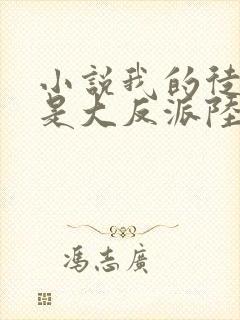 小說我的徒
是大反派陸
馮志廣